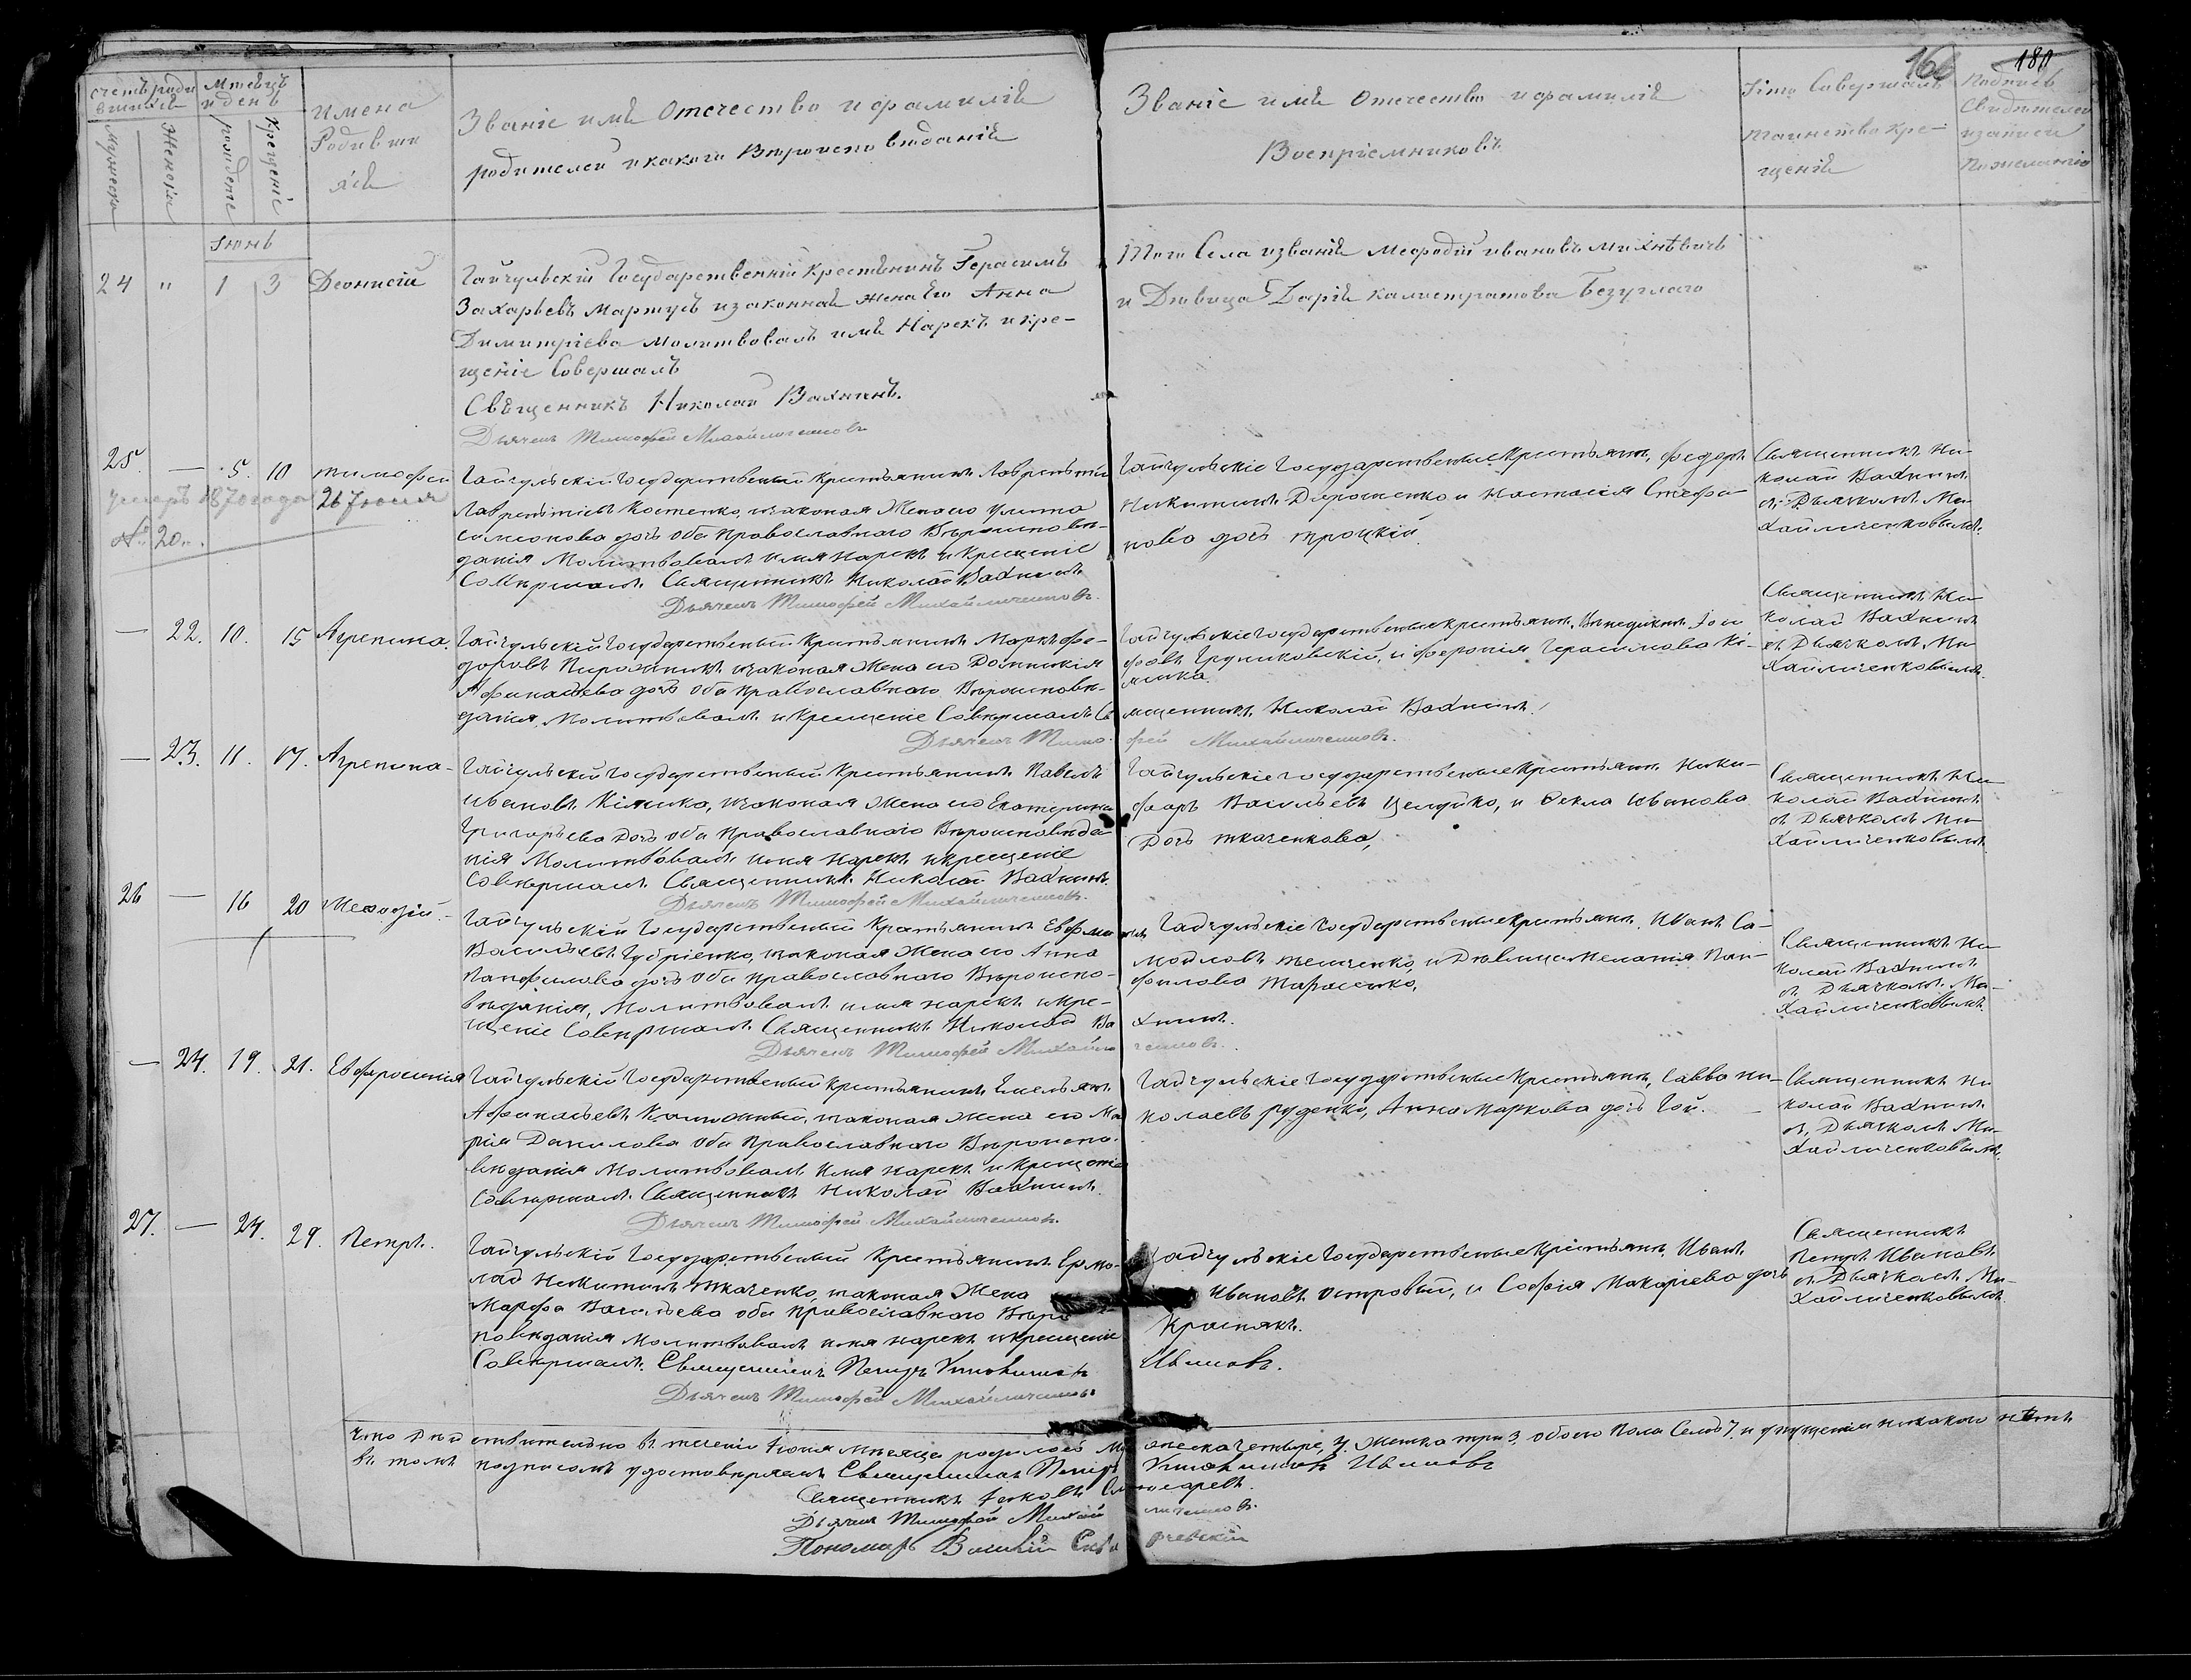 166 180
Счетъ роди Мѣсяцъ
вшихся и день
Мужеска Женска рожденіе Крещеніе
Имена
Родивши
хся
Званіе имя Отечество и фамилія
родителей и какого Вѣроисповѣданія
Званіе имя Отечество и фамилія
Воспріемниковъ
Кто Совершалъ
таинство кре-
щенія
Подпись
Свидетелей
записи
По желанію
Іюнь
24 " 1 3 Деонисій
Гайчульскій Государственній Крестьянинъ Герасимъ
Захарьевъ Мартусь и законная жена Его Анна
Димитріева молитвовалъ имя Нарекъ и кре-
щеніе Совершалъ
Священникъ Николай Вахнинъ.
Дьячекъ Тимофей Михайличенковъ
Того Села и званія Мефодій Ивановъ Михнѣвичъ
и Дѣвица Дарія Калистратова Безуглаго
25. — 5. 10 Тимофей
умеръ 1870 года 26 Іюня
№ 20.
Гайчульскій Государственый Крестьянинъ Лаврентій
Лаврентіевъ Костенко, и законая Жена его Улита
Симеонова дочь оба православнаго Вѣроисповѣ-
данія Молитвовалъ имя нарекъ и Крещеніе
Совершалъ Священникъ Николай Вахнинъ
Дьячекъ Тимофей Михайличенковъ.
Гайчульскіе Государственые Крестьяни, Федоръ
Никитинъ Дорошенко и Настасія Стефа-
нова дочь Троцкій.
Священникъ Ни-
колай Вахнинъ
съ Дьячкомъ Ми-
хайличенковымъ.
— 22. 10. 15 Агрепина.
Гайчульскій Государственый Крестьянинъ Маркъ Фе-
доровъ Пирожникъ и законая Жена его Домникія
Афинасиева дочь оба православнаго Вѣроисповѣ-
данія, Молитвовалъ и Крещеніе Совершалъ Св
Дьячекъ Тимо
Гайчульскіе Государственые крестьяни, Венедиктъ Іоси
фовъ Груниковскій, и Ферония Герасимова Кі-
яшка
ященникъ Николай Вахнинъ.
фей Михайличенковъ.
Священникъ Ни
колай Вахнинъ
съ Дьячкомъ Ми
хайличенковымъ.
— 23. 11. 17. Агрепина-
Гайчульскій Государственый Крестьянинъ Павелъ
Ивановъ Кіяшко, и законая Жена его Екатерина
Григорьева Дочь оба Православнаго Вѣроисповѣда
нія Молитвовалъ имя нарекъ и крещеніе
Совершалъ Священникъ Николай Вахнинъ.
Дьячекъ Тимофей Михайличенковъ.
Гайчульскіе Государственые Крестьяни Ники-
фаръ Васильевъ Целуйко, и Фекла Иванова
Дочь Ткаченкова,
Священникъ Ни-
колай Вахнинъ
съ Дьячкомъ Ми
хайличенковымъ
26 — 16 20 Мефодій.-
Гайчульскій Государственый Крестьянинъ Евфи
Васильевъ Губріенко, и законая Жена его Анна
Панфилова дочь Оба православнаго Вѣроиспо-
вѣданія, Молитвовалъ имя нарекъ и кре-
щеніе Совершалъ Священникъ Николай Ва
Дьячекъ Тимофей Михайли
Гайчульскіе Государственые крестьяни, Иванъ Са-
мойловъ и Дѣвица Мелания Пан-
филова Тарасенко,
хнинъ.
ченковъ.
Священникъ Ни
колай Вахнинъ
съ Дьячкомъ Ми-
хайличенковымъ.
— 24. 19. 21. Евфросинія
Гайчульскій Государственый Крестьянинъ Емельянъ
Афинасьевъ и законая Жена его Ма
рія Данилова оба Православнаго Вѣроиспо-
вѣданія Молитвовалъ Имя нарекъ и Крещеніе
Совершалъ Священникъ Николай Вахнинъ.
Дьячекъ Тимофей Михайличенковъ.
Гайчульскіе Государственые Крестьяни, Савва Ни-
колаевъ Руденко, Анна Маркова дочь Гой.
Священникъ Ни
колай Вахнинъ
съ Дьячкомъ Ми-
хайличенковымъ.
27. — 24. 29. Петръ.
Гайчульскій Государственый Крестьянинъ Ермо-
лай Никитинъ Ткаченко, и законая Жена
Марфа Васильева оба православнаго Вѣро
повѣданія Молитвовалъ имя нарекъ и крещеніе
Совершалъ. Священникъ Петръ
Дьячекъ Тимофей Михайличенковъ
Гайчульскіе Государственые Крестьяни, Иванъ
Ивановъ Островый, и Софія Макаріева дочь
Ивановъ.
Священникъ
Петръ Ивановъ
съ Дьячкомъ Ми-
хайличенковымъ
Что дѣйствительно въ теченіи Іюня Мѣсяца родилось Мужеска четыре, 4. Женска три 3. обоего Пола Семь 7. и упущенія никакого нѣтъ
въ томъ подписомъ удостовѣряемъ Священникъ Петръ Ивановъ
Священникъ Іаковъ
Дьячекъ Тимофей Михайличенковъ.
Пономарь